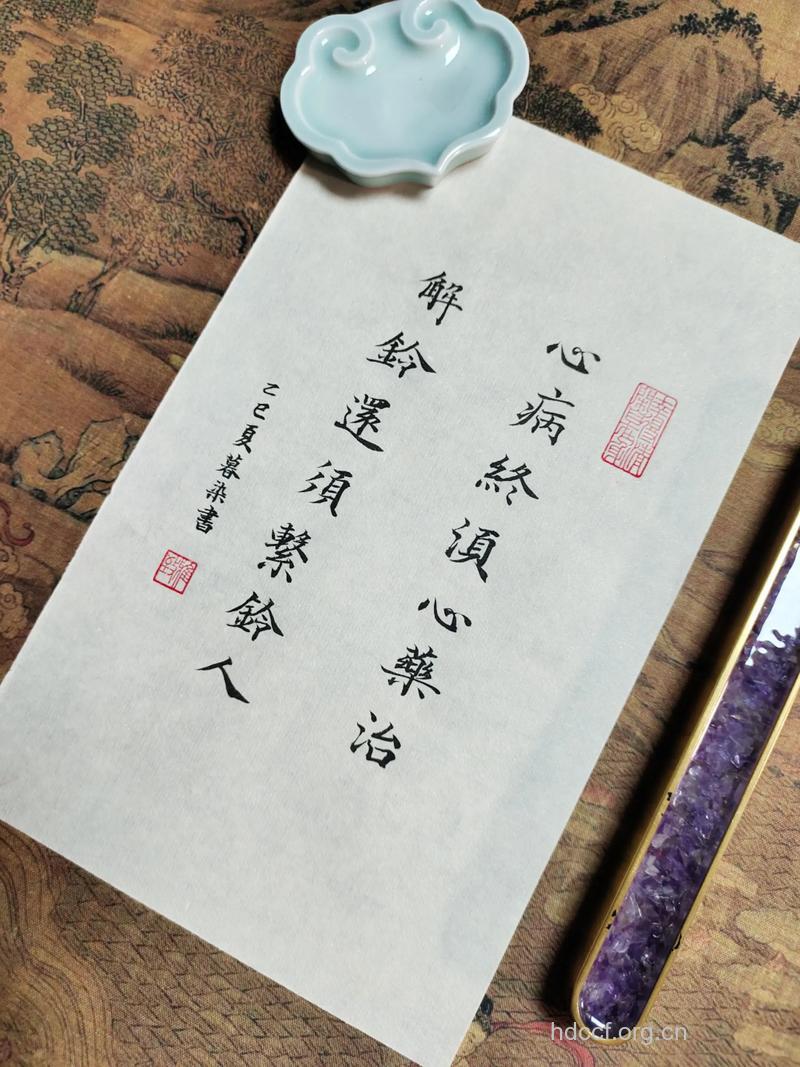 心病終須心藥治
解鈴還須繫鈴人
乙巳夏暮染書
hdccf.org.cn